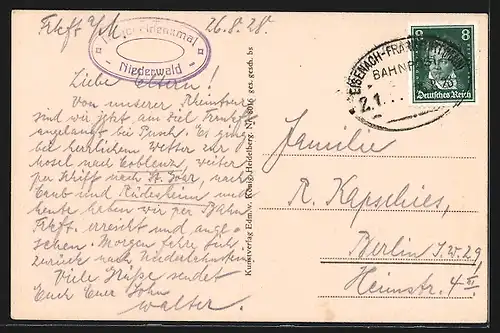 Frkft a/M 26.8.28.
Nationaldenkmal
Niederwald
Liebe Eltern!
Von unserer Rheintour
sind wir jetzt am Ziel Frankft
angelangt bei
bei herrlichem Wetter zur
Mosel nach Coblenz, weiter
per Schiff nach St. Goar, nach
Caub und Rüdesheim und
heute haben wir per Bahn
Frkft. erreicht und ange-
sehen. Morgen fahre ich
zurück nach Niederlahnstein
Viele Grüße sendet
Euch Euer Sohn
Walter.
Kunstverlag Edm. v. König, Heidelberg. ges. gesch.
EISENACH-FRANKFURT
BAHNPOST
8 8
Deutsches Reich
Familie
R. Kapschies,
Berlin S.W. 29,
Heimstr. 4 III